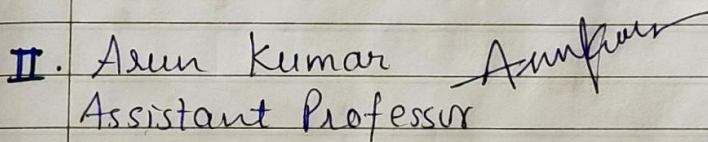 II. Arun Kumar Arunkum
Assistant Professor